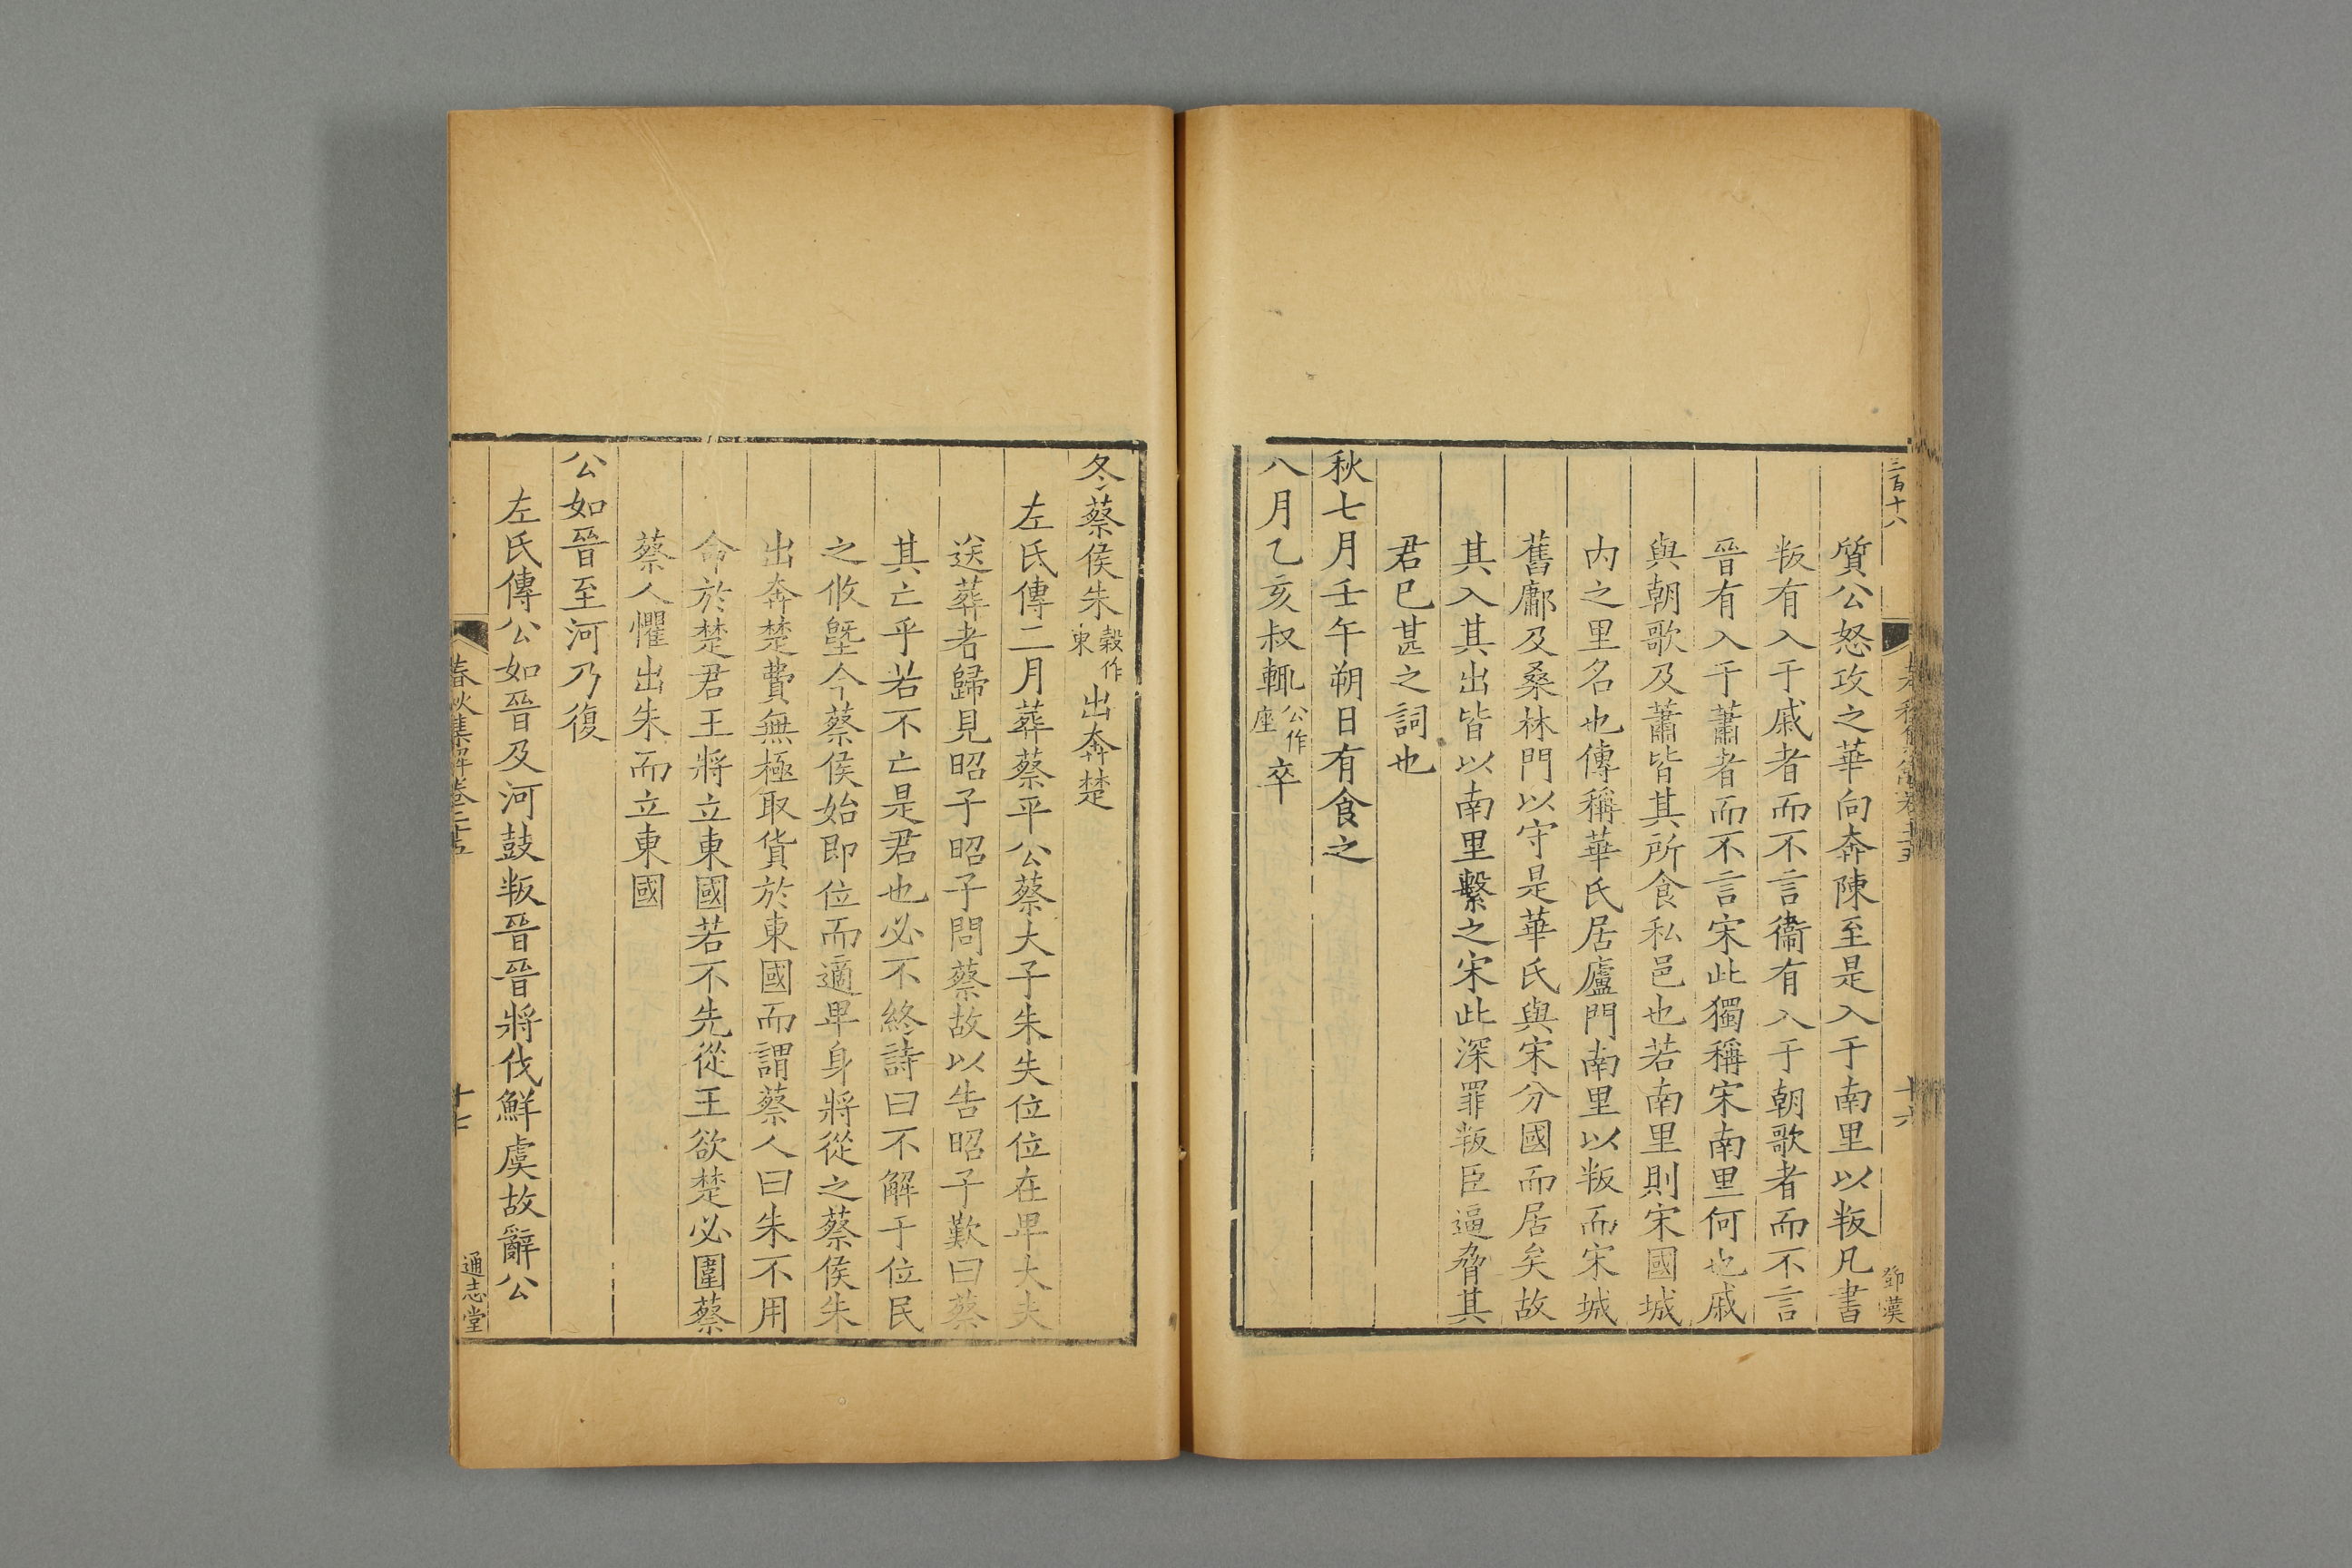 三百十八
鄧漢
十六
質公怒攻之華向奔陳至是入于南里以叛凡書
叛有入于戚者而不言衞有入于朝歌者而不言
晉有入于蕭者而不言宋此獨稱宋南里何也戚
與朝歌及蕭皆其所食私邑也若南里則宋國城
内之里名也傳稱華氏居廬門南里以叛而宋城
舊鄘及桑林門以守是華氏與宋分國而居矣故
其入其出皆以南里繫之宋此深罪叛臣逼脅其
君已甚之詞也
秋七月壬午朔日有食之
八月乙亥叔輒公作座卒
冬蔡侯朱穀作東出奔楚
左氏傳二月葬蔡平公蔡大子朱失位位在卑大夫
送葬者歸見昭子昭子問蔡故以告昭子歎曰蔡
其亡乎若不亡是君也必不終詩曰不解于位民
之攸塈今蔡侯始即位而適卑身將從之蔡侯朱
出奔楚費無極取貨於東國而謂蔡人曰朱不用
命於楚君王將立東國若不先從王欲楚必圍蔡
蔡人懼出朱而立東國
公如晉至河乃復
左氏傳公如晉及河鼓叛晉晉將伐鮮虞故辭公
春秋集解卷二十五
十七
通志堂